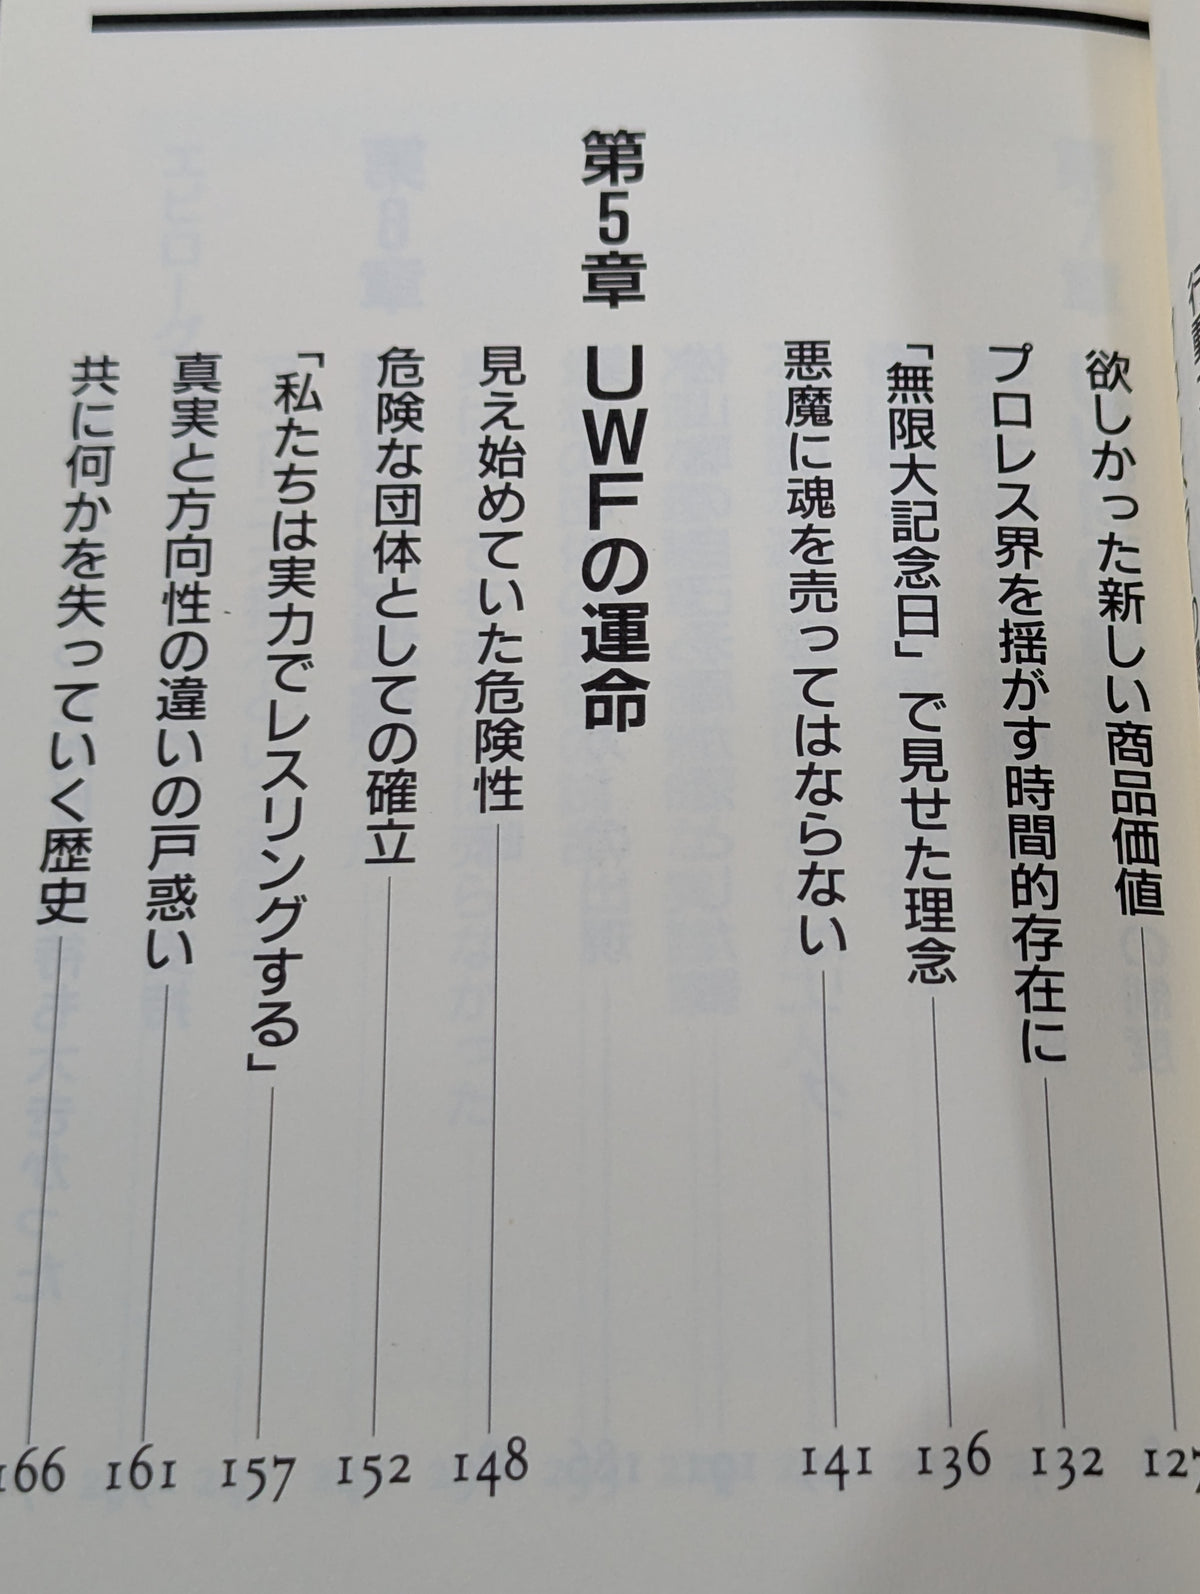 欲しかった新しい商品価値 127
プロレス界を揺がす時間的存在に 132
「無限大記念日」で見せた理念 136
悪魔に魂を売ってはならない 141
第5章 UWFの運命
見え始めていた危険性 148
危険な団体としての確立 152
「私たちは実力でレスリングする」 157
真実と方向性の違いの戸惑い 161
共に何かを失っていく歴史 166